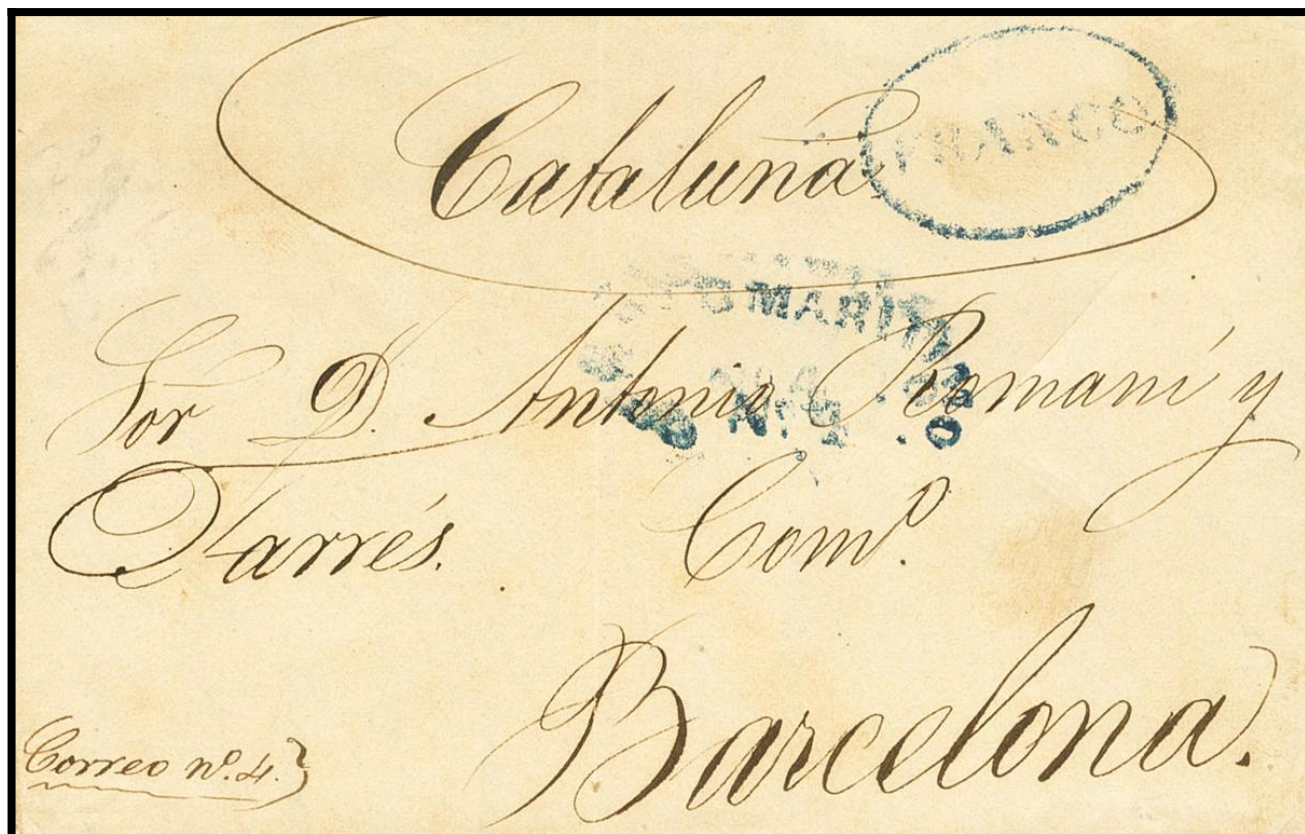 Cataluña
FRANCO
Sor D. Antonio Romaní y
Tarrés. Como.
Barcelona.
Correo no. 4.